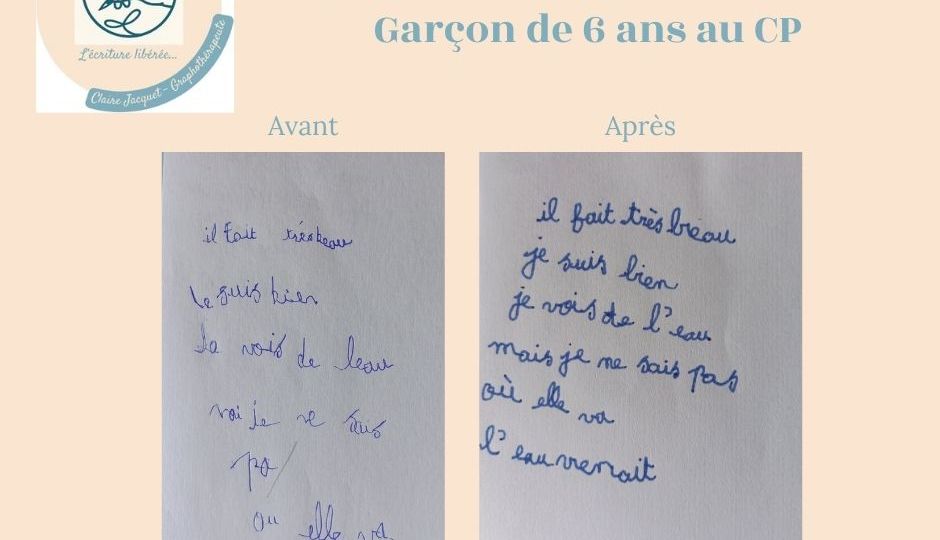 Garçon de 6 ans au CP
L'écriture libérée...
Claire Jacquet - Graphothérapeute
Avant
Après
il fait très beau
je suis bien
la vois de leau
voi je ne sais
pa
ou elle va
il fait très breau
je suis bien
je vois de l'eau
mais je ne sais pas
où elle va
l'eau venait